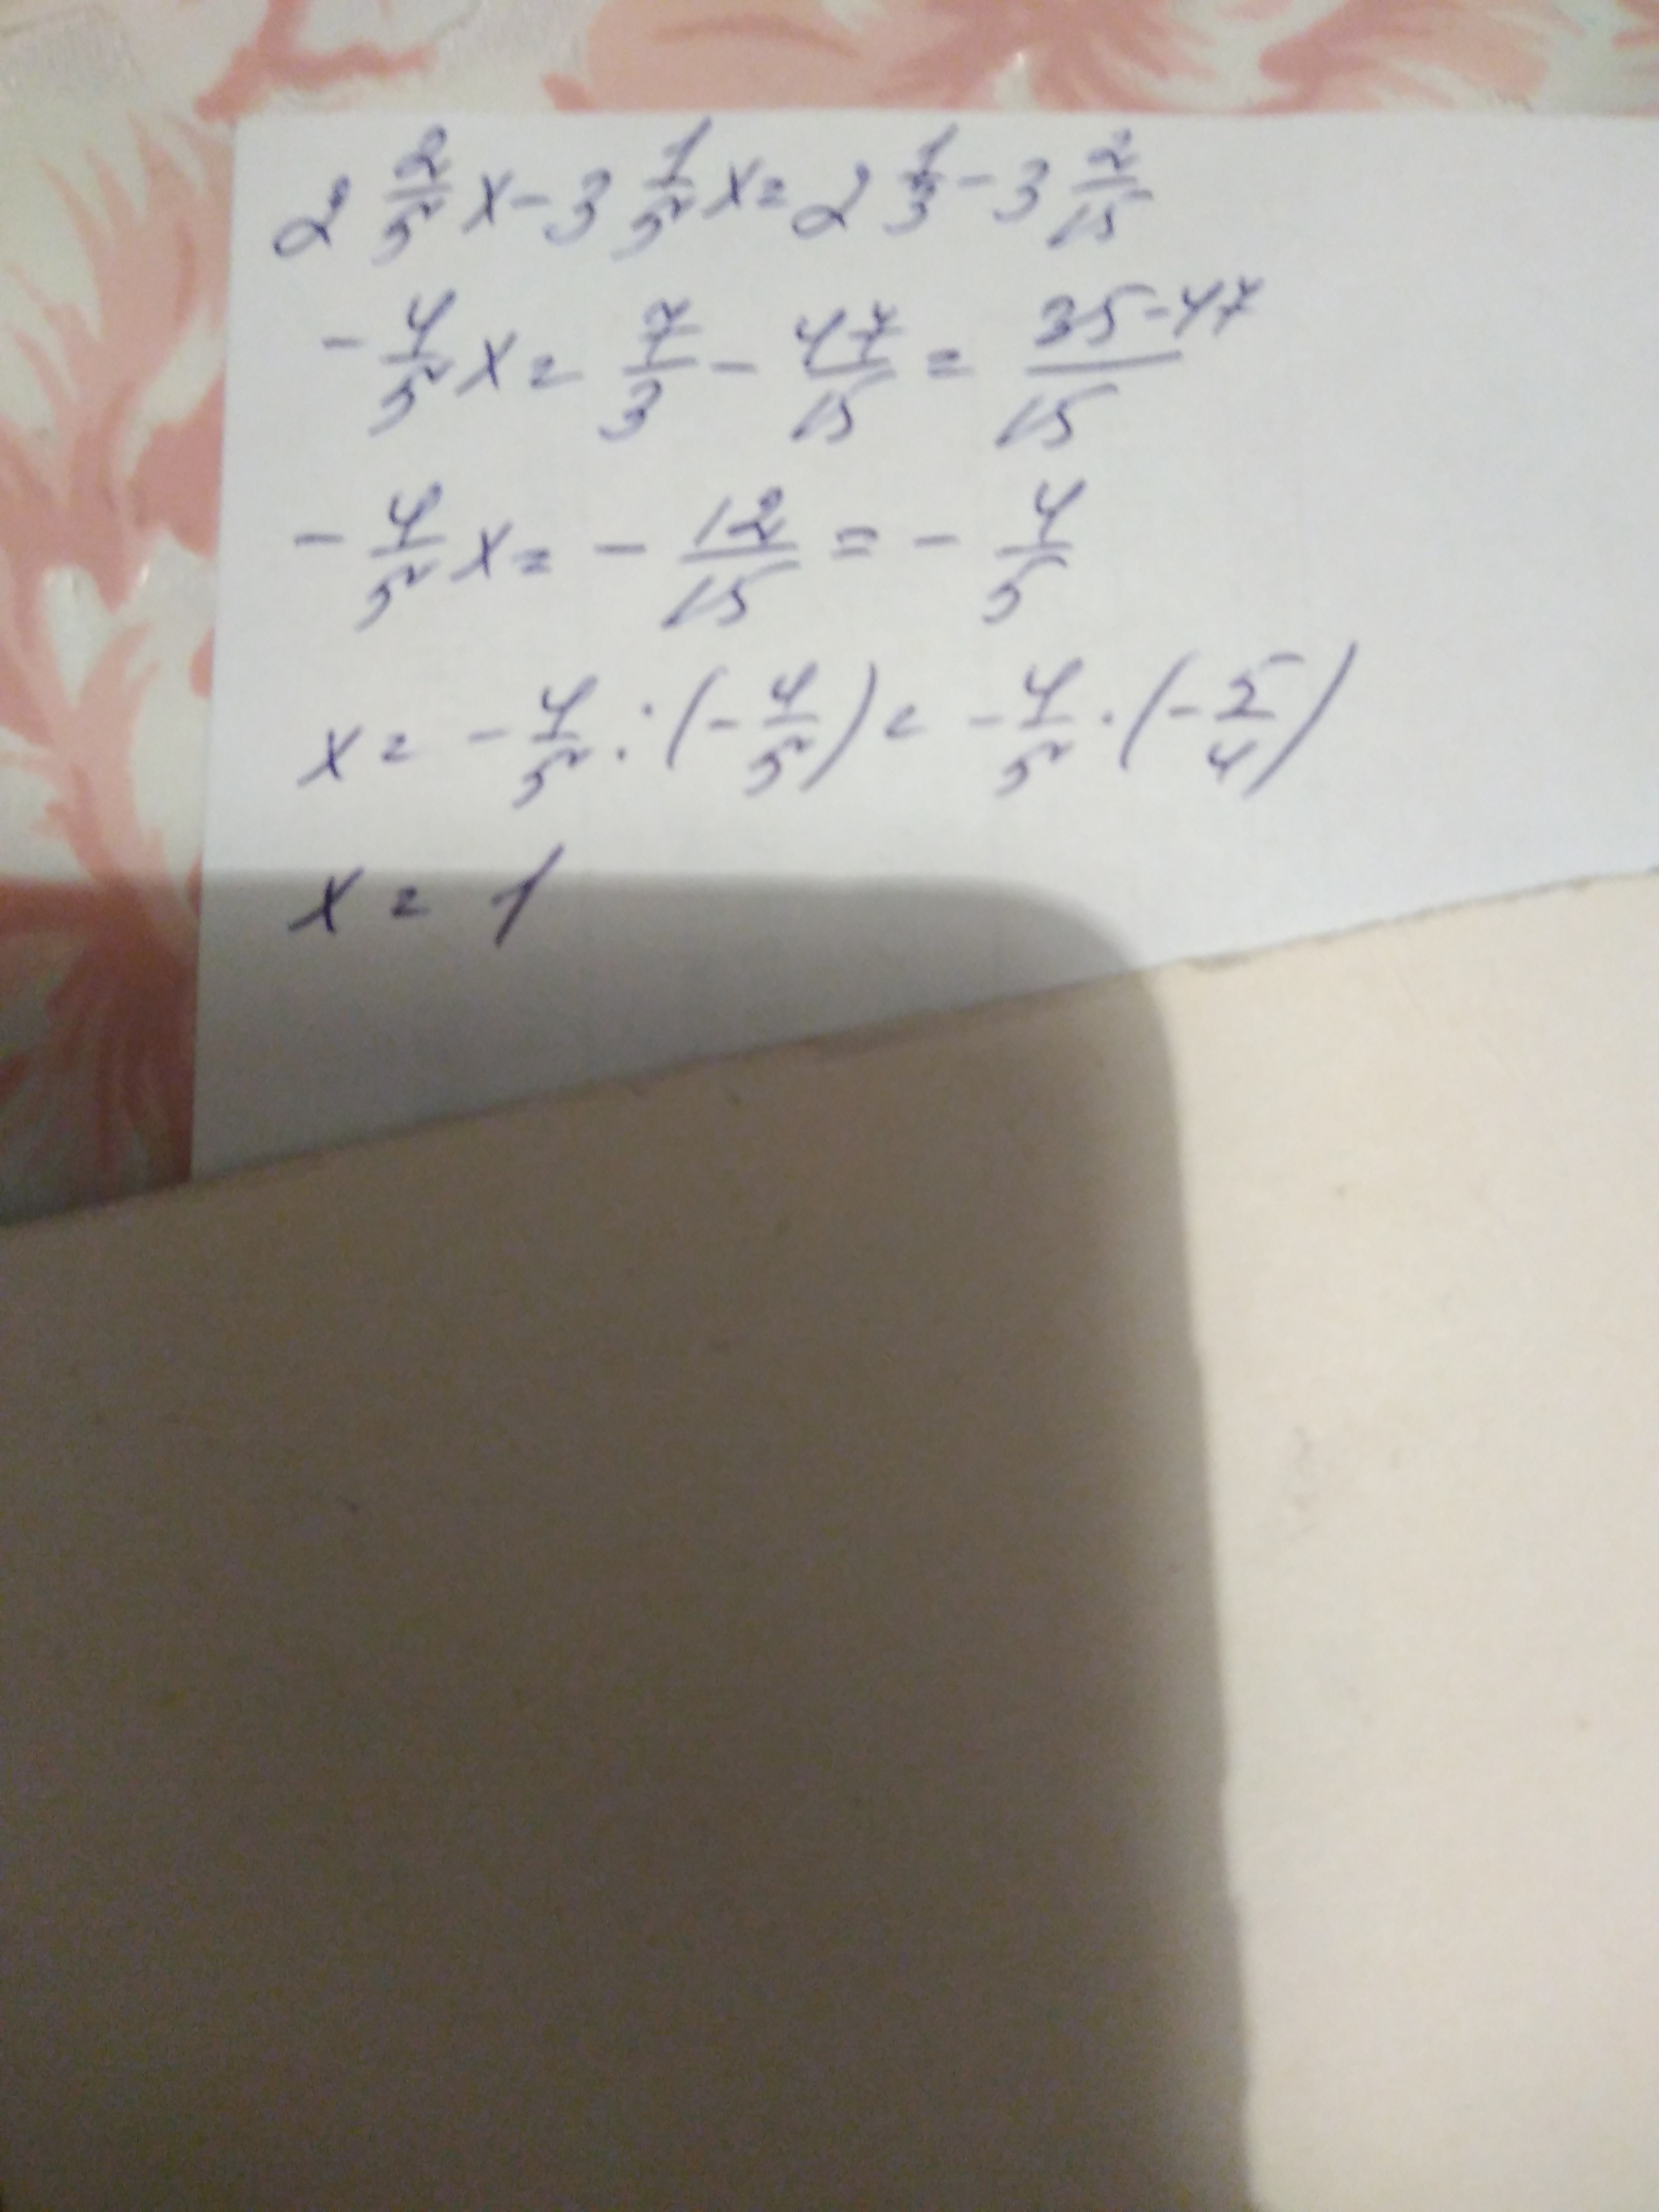 2 2/5 x - 3 1/5 x = 2 1/3 - 3 2/15
- 4/5 x = 7/3 - 47/15 = 35-47/15
- 4/5 x = - 12/15 = - 4/5
x = - 4/5 : (- 4/5) = - 4/5 · (- 5/4)
x = 1